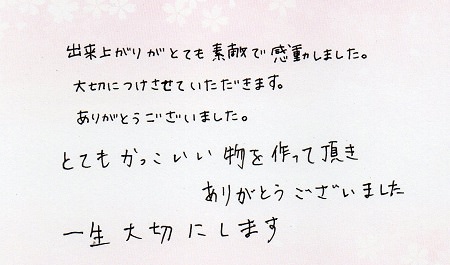 出来上がりがとても素敵で感動しました。
大切につけさせていただきます。
ありがとうございました。
とてもかっこいい物を作って頂き
ありがとうございました
一生大切にします